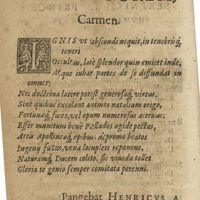 Carmen.
IGNIS vt abscondi nequit, in tenebrisq;
teneri
Occultus, latè splendor quin emicet inde,
Atque iubar partes de se diffundat in
omneis:
Nec doctrina latere potest generosaq́; virtus,
Sint quibus excolant animos natalium origo,
Fortunaq́;, faceis, vel opum numerosus aceruus:
Esser munitum benè Pallados agide pectus,
Artu Apollineaq́;, opibus ac proemo beatos
Ingeny fultas, vena locuplete reponens,
Naturamq́; Ducem cœlito, sic viuida tollet
Gloria te genio semper comitata perenni.
Pangebat HENRICVS A